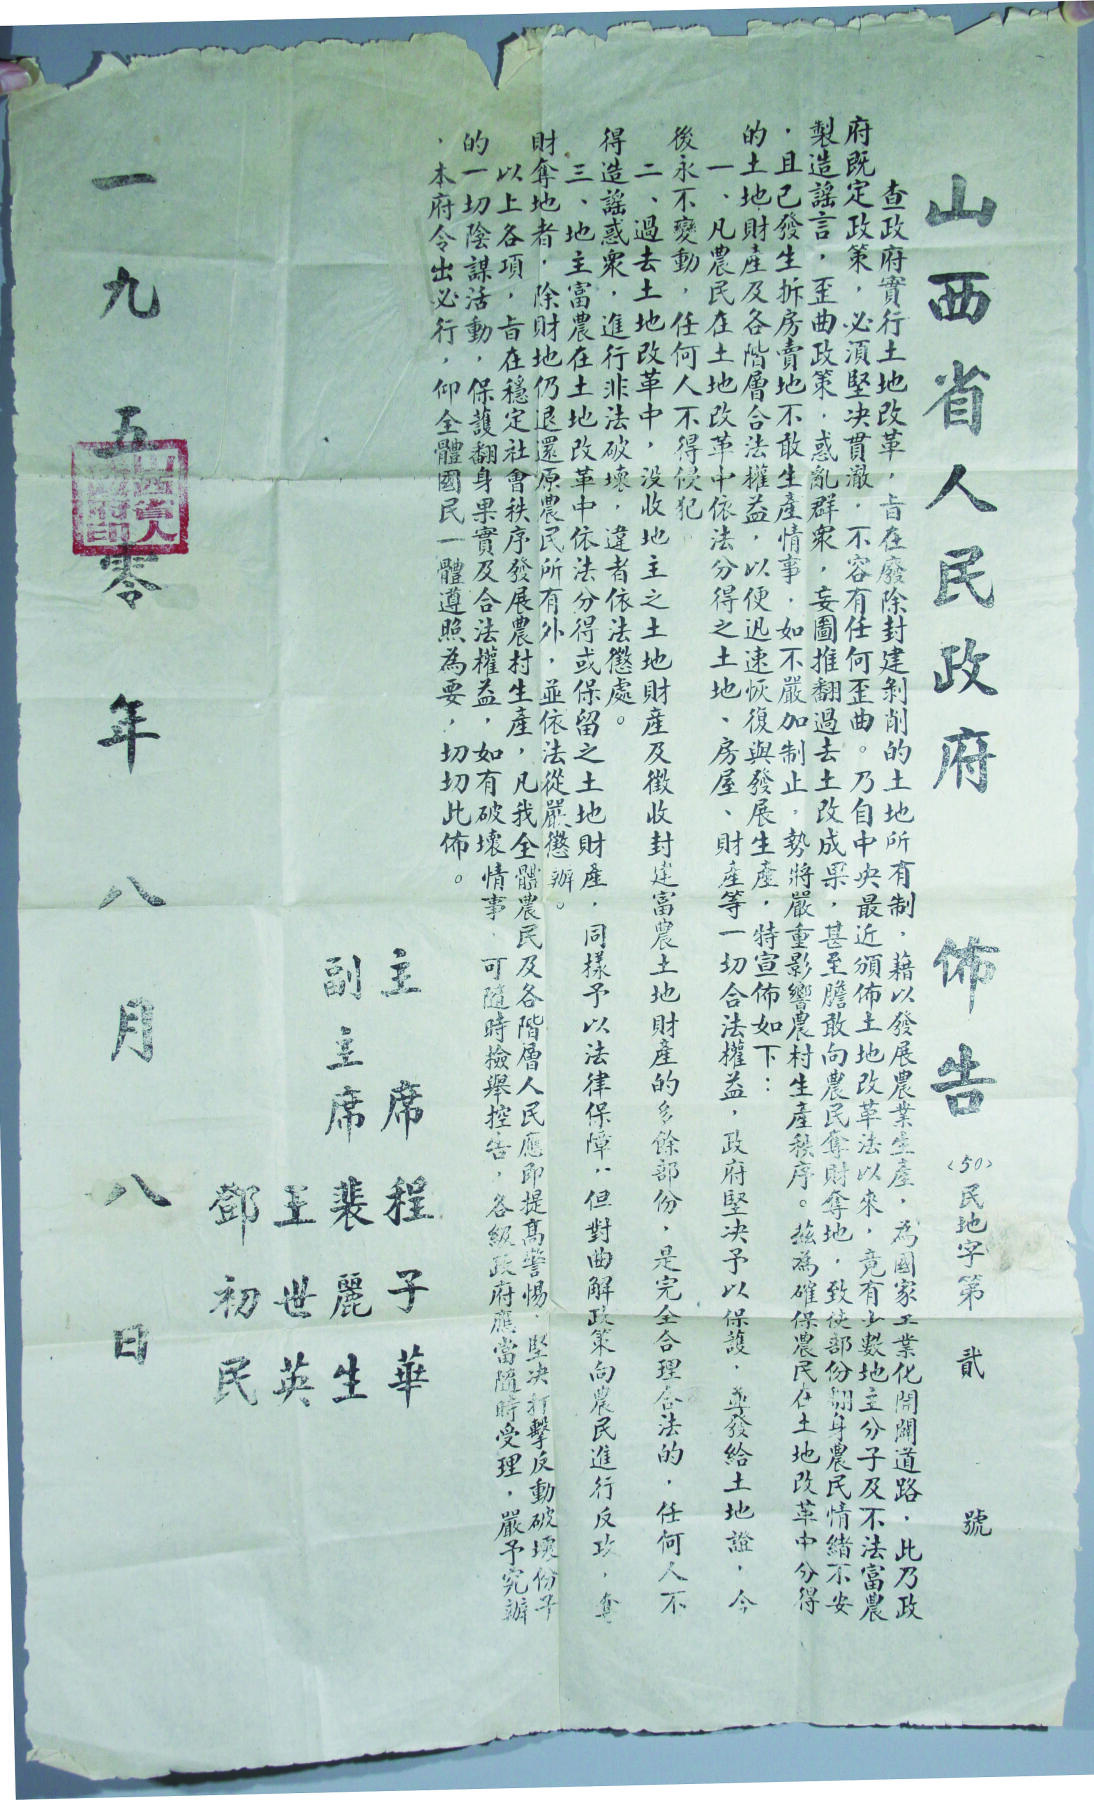 山西省人民政府 佈告 〈50〉民地字第 貳 號
查政府實行土地改革，旨在廢除封建剝削的土地所有制，藉以發展農業生產，為國家工業化開闢道路，此乃政
府既定政策，必須堅决貫澈，不容有任何歪曲。乃自中央最近頒佈土地改革法以來，竟有少數地主分子及不法富農
製造謠言，歪曲政策，惑亂群衆，妄圖推翻過去土改成果，甚至膽敢向農民奪財奪地，致使部份翻身農民情緒不安
，且已發生拆房賣地不敢生產情事，如不嚴加制止，勢將嚴重影響農村生產秩序。茲為確保農民在土地改革中分得
的土地財產及各階層合法權益，以便迅速恢復與發展生產，特宣佈如下：
一、凡農民在土地改革中依法分得之土地、房屋、財產等一切合法權益，政府堅决予以保護，並發給土地證，今
後永不變動，任何人不得侵犯。
二、過去土地改革中，没收地主之土地財產及徵收封建富農土地財產的多餘部份，是完全合理合法的，任何人不
得造謠惑衆，進行非法破壞，違者依法懲處。
三、地主富農在土地改革中依法分得或保留之土地財產，同樣予以法律保障，但對曲解政策向農民進行反攻，奪
財奪地者，除財地仍退還原農民所有外，並依法從嚴懲辦。
以上各項，旨在穩定社會秩序發展農村生產，凡我全體農民及各階層人民應即提高警惕，堅决打擊反動破壞份子
的一切陰謀活動，保護翻身果實及合法權益，如有破壞情事，可隨時檢舉控告，各級政府應當隨時受理，嚴予究辦
，本府令出必行，仰全體國民一體遵照為要，切切此佈。
主席 程子華
副主席 裴麗生
王世英
鄧初民
一九五零年八月八日
山西省人
政府印